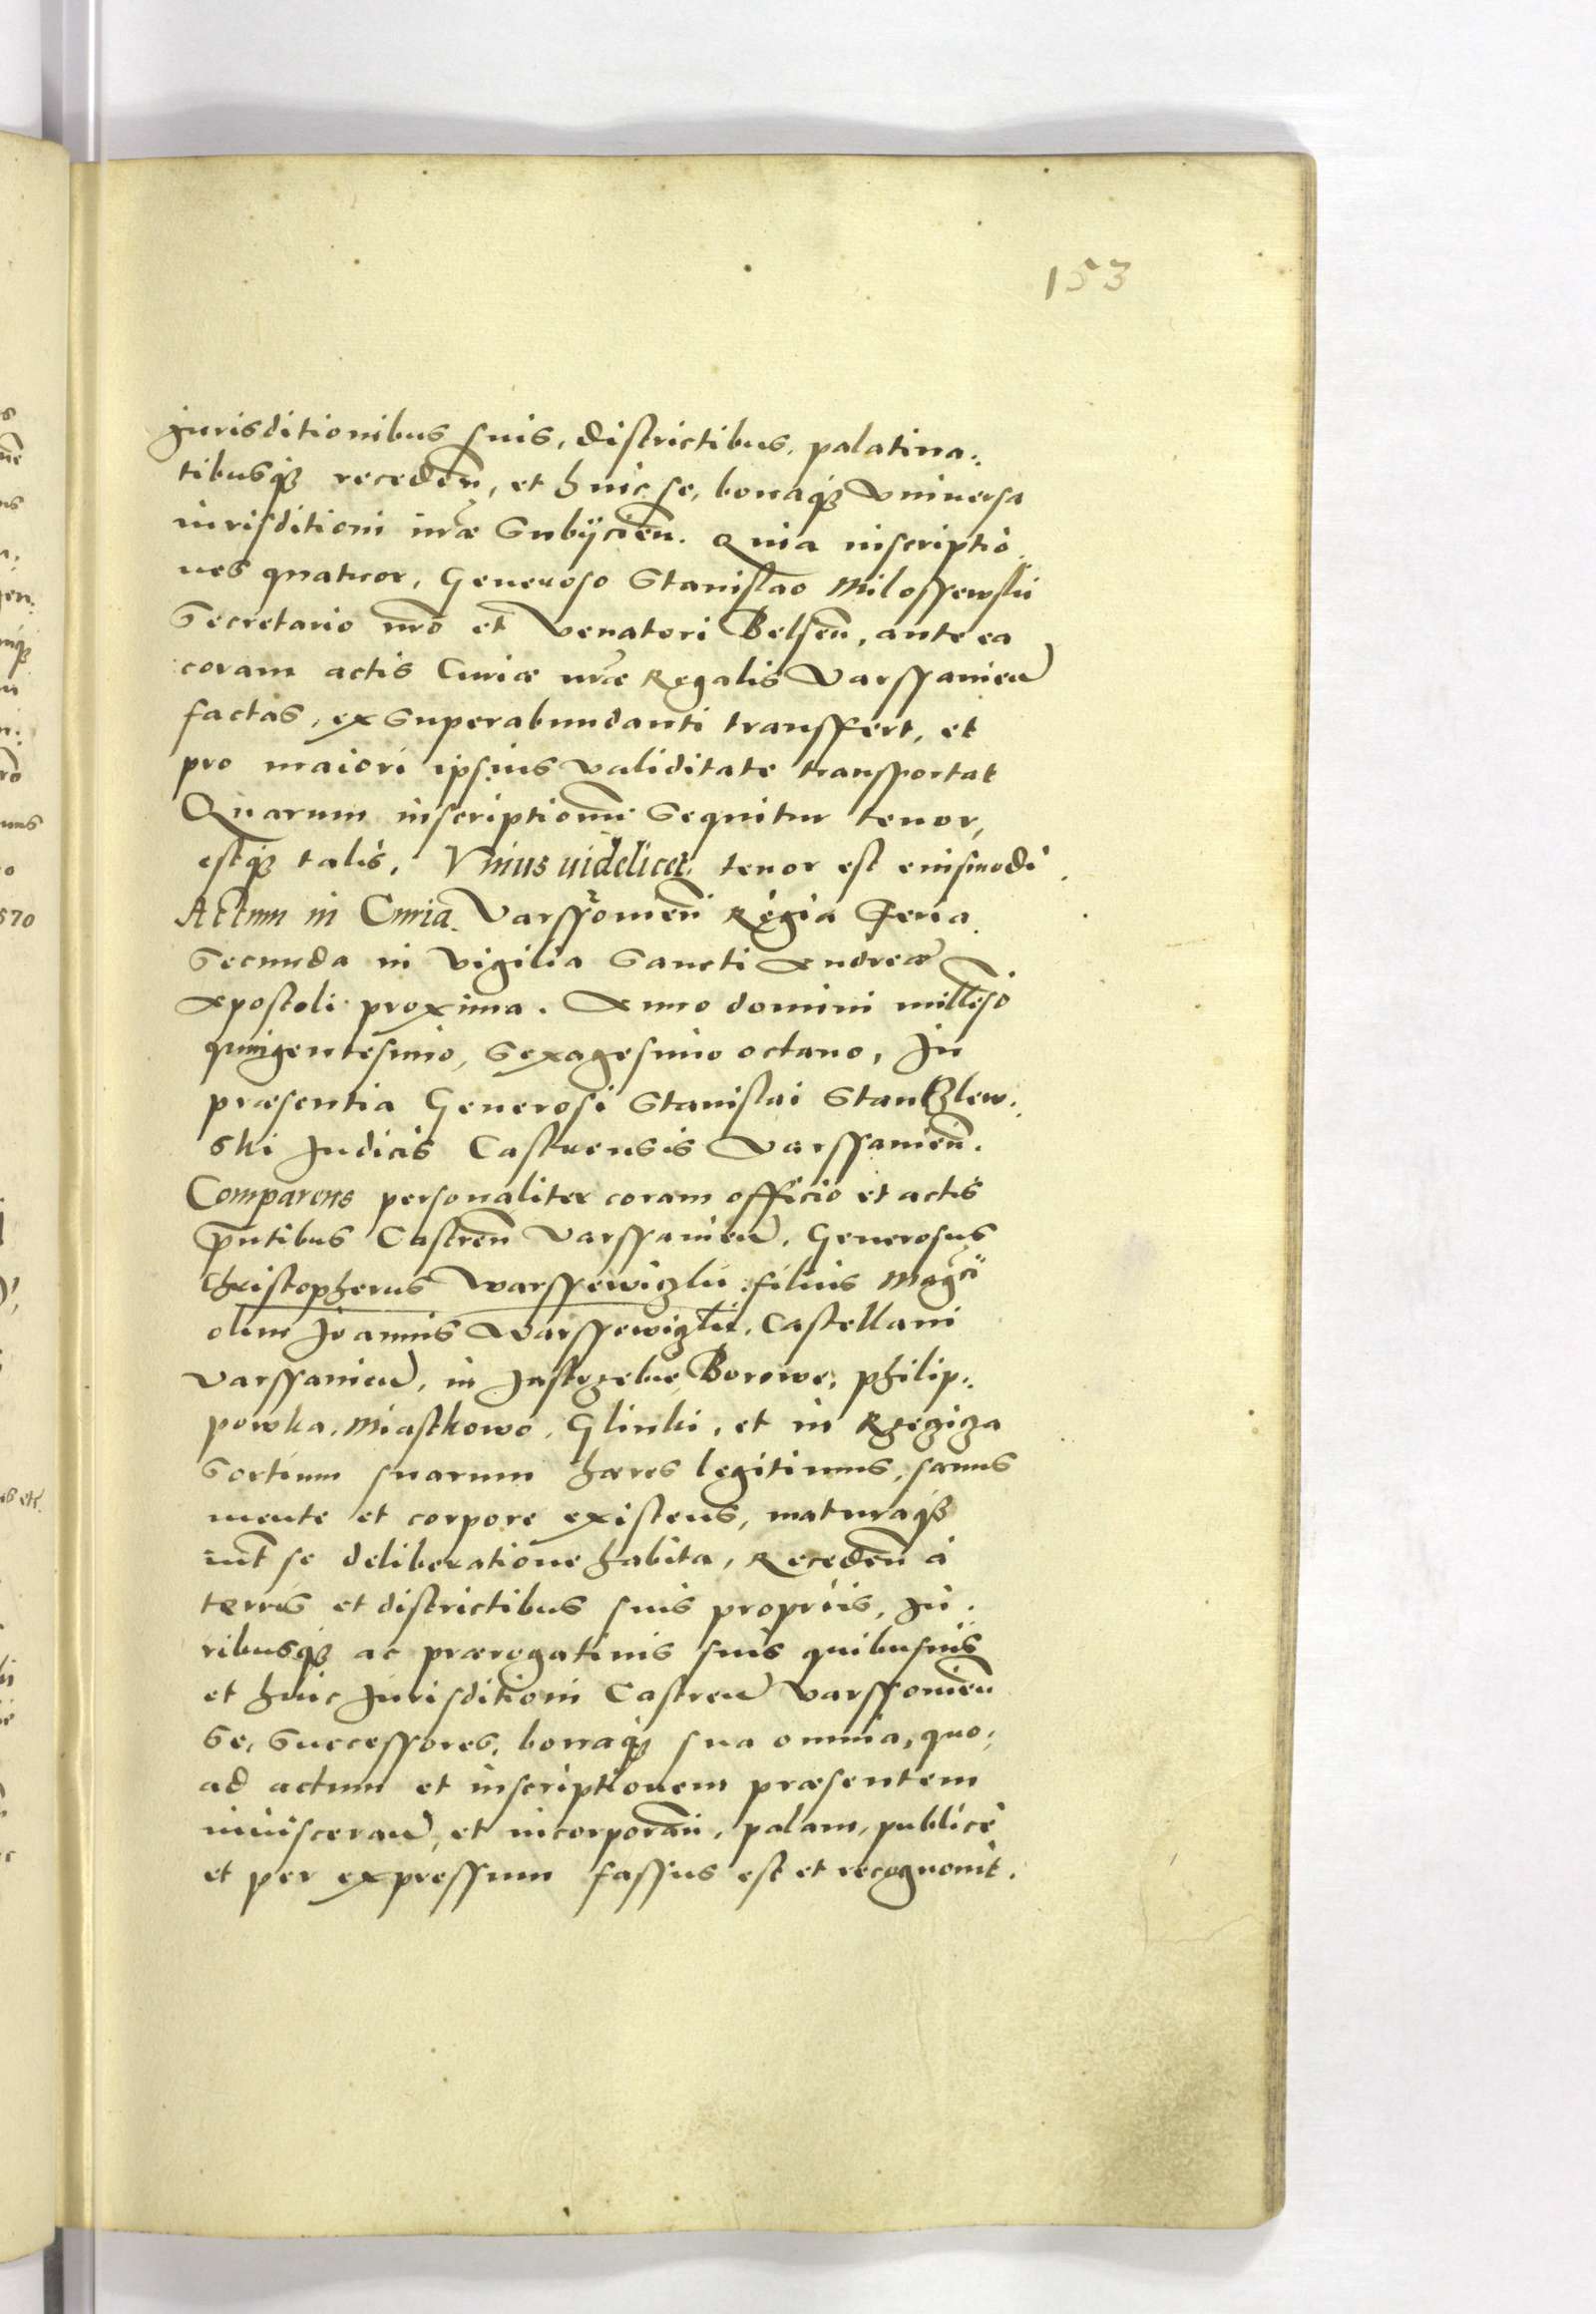 153
Jurisditionibus suis, districtibus, palatina:
tibusq₃ receden̄, et huic se, bonaq₃ vniuersa
iurisditioni nr̄æ Subÿcien̄. Quia inscriptio
nes quatuor, Generoso Stanislao Milossewski
Secretario nr̄o et Venatori Belsen̄, antea
coram actis Curiæ nr̄æ Regalis Varssauien̄
factas, ex Superabundanti transffert, et
pro maiori ipsius validitate transportat
Quarum inscriptionū Sequitur tenor,
estq₃ talis, Vnius uidelicet, tenor est eiusmodi
Actum in Curia Varssouien̄ Regia Feria
Secunda in Vigilia Sancti Andreæ
Apostoli proxima. Anno domini millesō
quingentesimo, Sexagesimo octauo, In
præsentia Generosi Stanislai Stankzlew:
ski Judicis Castrensis Varssauien̄.
Comparens personaliter coram officio et actis
p̄ntibus Castren̄ Varssauien̄, Generosus
Christopherus Warssewiczki filius Magci
olim Joannis Warssewiczki, Castellani
Varssauien̄, in Jastrzebie, Borowe, philip:
powka, Miastkowo, Glinki, et in Rzeziza
Sortium suarum hæres legitimus, sanus
mente et corpore existens, maturaq₃
int̄ se deliberatione habita, Receden̄ à
terris et districtibus suis proprÿs, Ju
ribusq₃ ac prærogatiuis suis quibusuis
et huic Jurisditioni Castren̄ Varssouien̄
Se, Successores, bonaq₃ sua omnia, quo:
ad actum et inscriptionem præsentem
inuisceran̄, et incorporan̄, palam, publicè
et per expressum fassus est et recognouit.
570